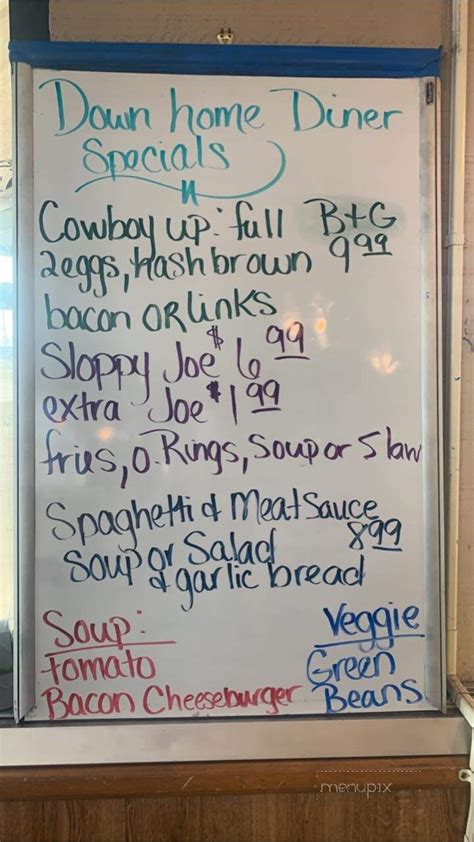 Down home Diner
Specials
Cowboy up: full B+G
2 eggs, Hash brown 9 99
bacon OR links
Sloppy Joe $6 99
extra Joe $1 99
fries, O. Rings, Soup or Slaw
Spaghetti & Meat Sauce
Soup or Salad 8 99
& garlic bread
Soup:
tomato
Bacon Cheeseburger
Veggie
Green
Beans
menupix